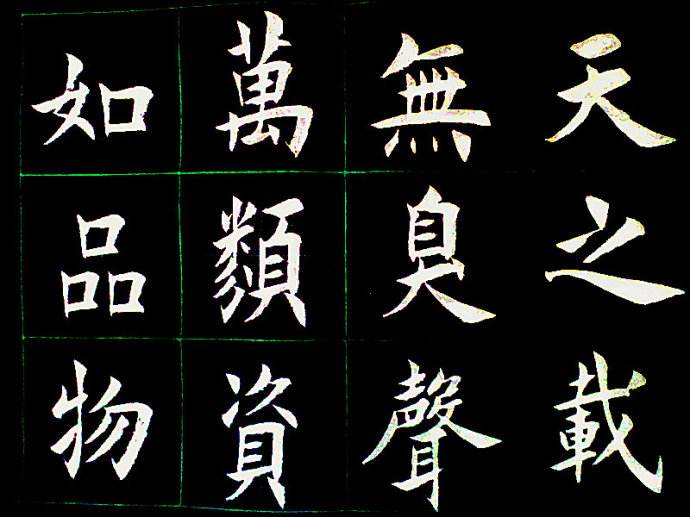 天之載
無臭聲
萬類資
如品物